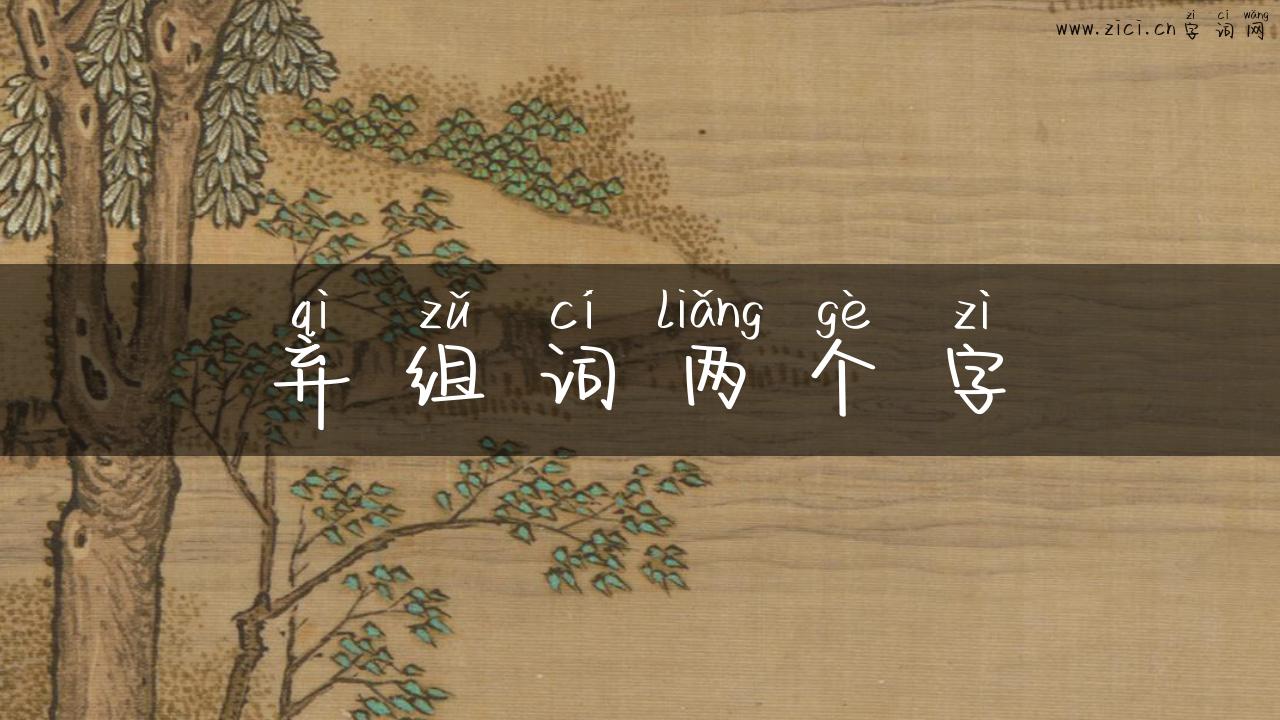 zì cí wǎng
www.zici.cn 字词网
qì zǔ cí liǎng gè zì
弃组词两个字